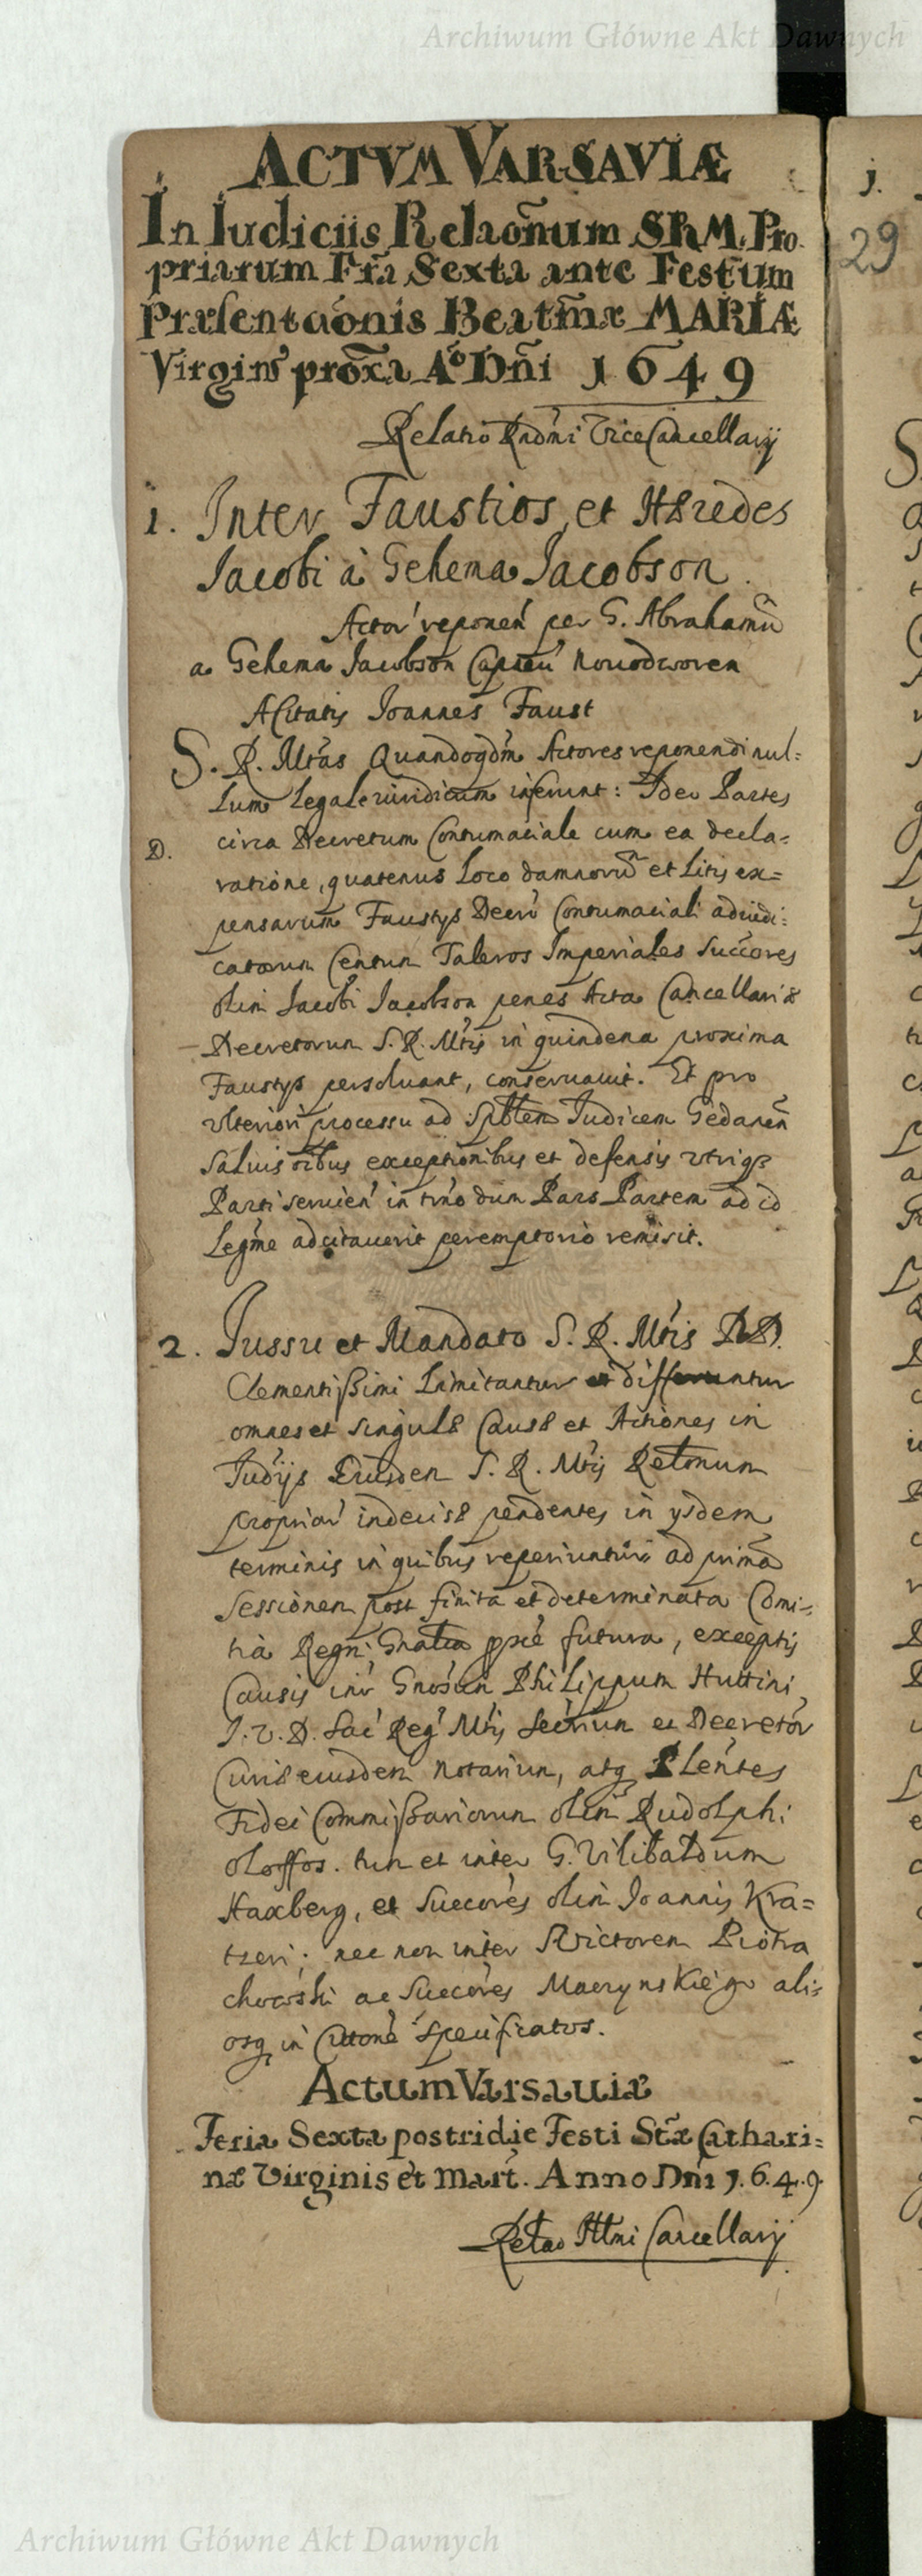 Archiwum Główne Akt Dawnych
ACTVM VARSAVIÆ
In Iudiciis Relaōnum SRM. Pro-
priarum Fr̃a Sexta ante Festum
Præsentaōnis Beatm̃æ MARIÆ
Virginis prōxa A° Dñi 1649
Relatio Rndmi ViceCancellarij
1. Inter Faustios et Hæredes
Jacobi à Gehema Jacobson.
Actor' reponen' per G. Abrahamū
a Gehema Jacobson Capten' Nouodworen
ACitatis Joannes Faust
S. R. Mtas Quandoqdm Actores reponendi nul=
lum legale iuridicum inferunt: Ideo Partes
D. circa Decretum Contumaciale cum ea decla=
ratione, quatenus loco damnorū et litis ex=
pensarum Faustys Decro Contumaciali adiudi=
catorum Centum Taleros Imperiales Succores
olim Jacobi Jacobson penes Acta Cancellariæ
Decretorum S. R. Mtis in quindena proxima
Faustys persoluant, conseruauit. Et pro
vlteriori processu ad Spblem Iudicem Gedanen
Saluis oibus exceptionibus et defensis vtriqȝ
Parti seruien' in tmo dum Pars Partem ad id
Legme adcitauerit peremptorio remisit.
2. Jussu et Mandato S. R. Mtis DD.
Clementißimi Limitantur et differuntur
omnes et singulæ Causæ et Actiones in
Judijs Eiusdem S. R. Mtis Retonum
propriar' indecisæ pendentes in ysdem
terminis in quibus reperiuntur ad primā
Sessionem post finita et determinata Comi=
tia Regni Gnalia ppxie futura, exceptis
Causis intr Gnosum Philippum Huttini
J. V. D. Sac Reg Mtis Secrium et Decretor
Curiæ eiusdem Notarium, atqȝ
Fidei Commißariorum olim Rudolphi
oloffos. tum et inter G. Vilibaldum
Haxberg, et Succores olim Joannis Kra=
tzeri; nec non inter Victorem Piotra
chowski ac Succores Maczynskiego ali=
osqȝ in Cittone Specificatos.
Actum Varsauiæ
Feria Sexta postridie Festi Stæ Cathari=
næ Virginis et Mart. Anno Dni 1.6.4.9
Relao Illmi Cancellarij
j.
29
Archiwum Główne Akt Dawnych